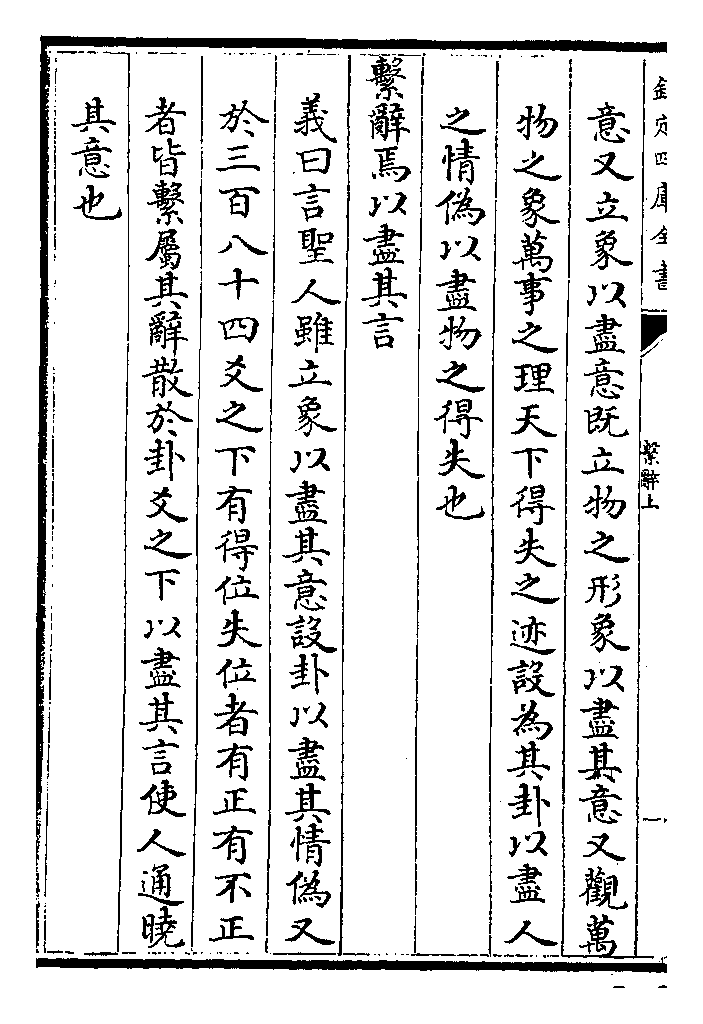 欽定四庫全書
繫辭上
意又立象以盡意既立物之形象以盡其意又觀萬
物之象萬事之理天下得失之迹設為其卦以盡人
之情偽以盡物之得失也
繫辭焉以盡其言
義曰言聖人雖立象以盡其意設卦以盡其情偽又
於三百八十四爻之下有得位失位者有正有不正
者皆繫屬其辭散於卦爻之下以盡其言使人通曉
其意也